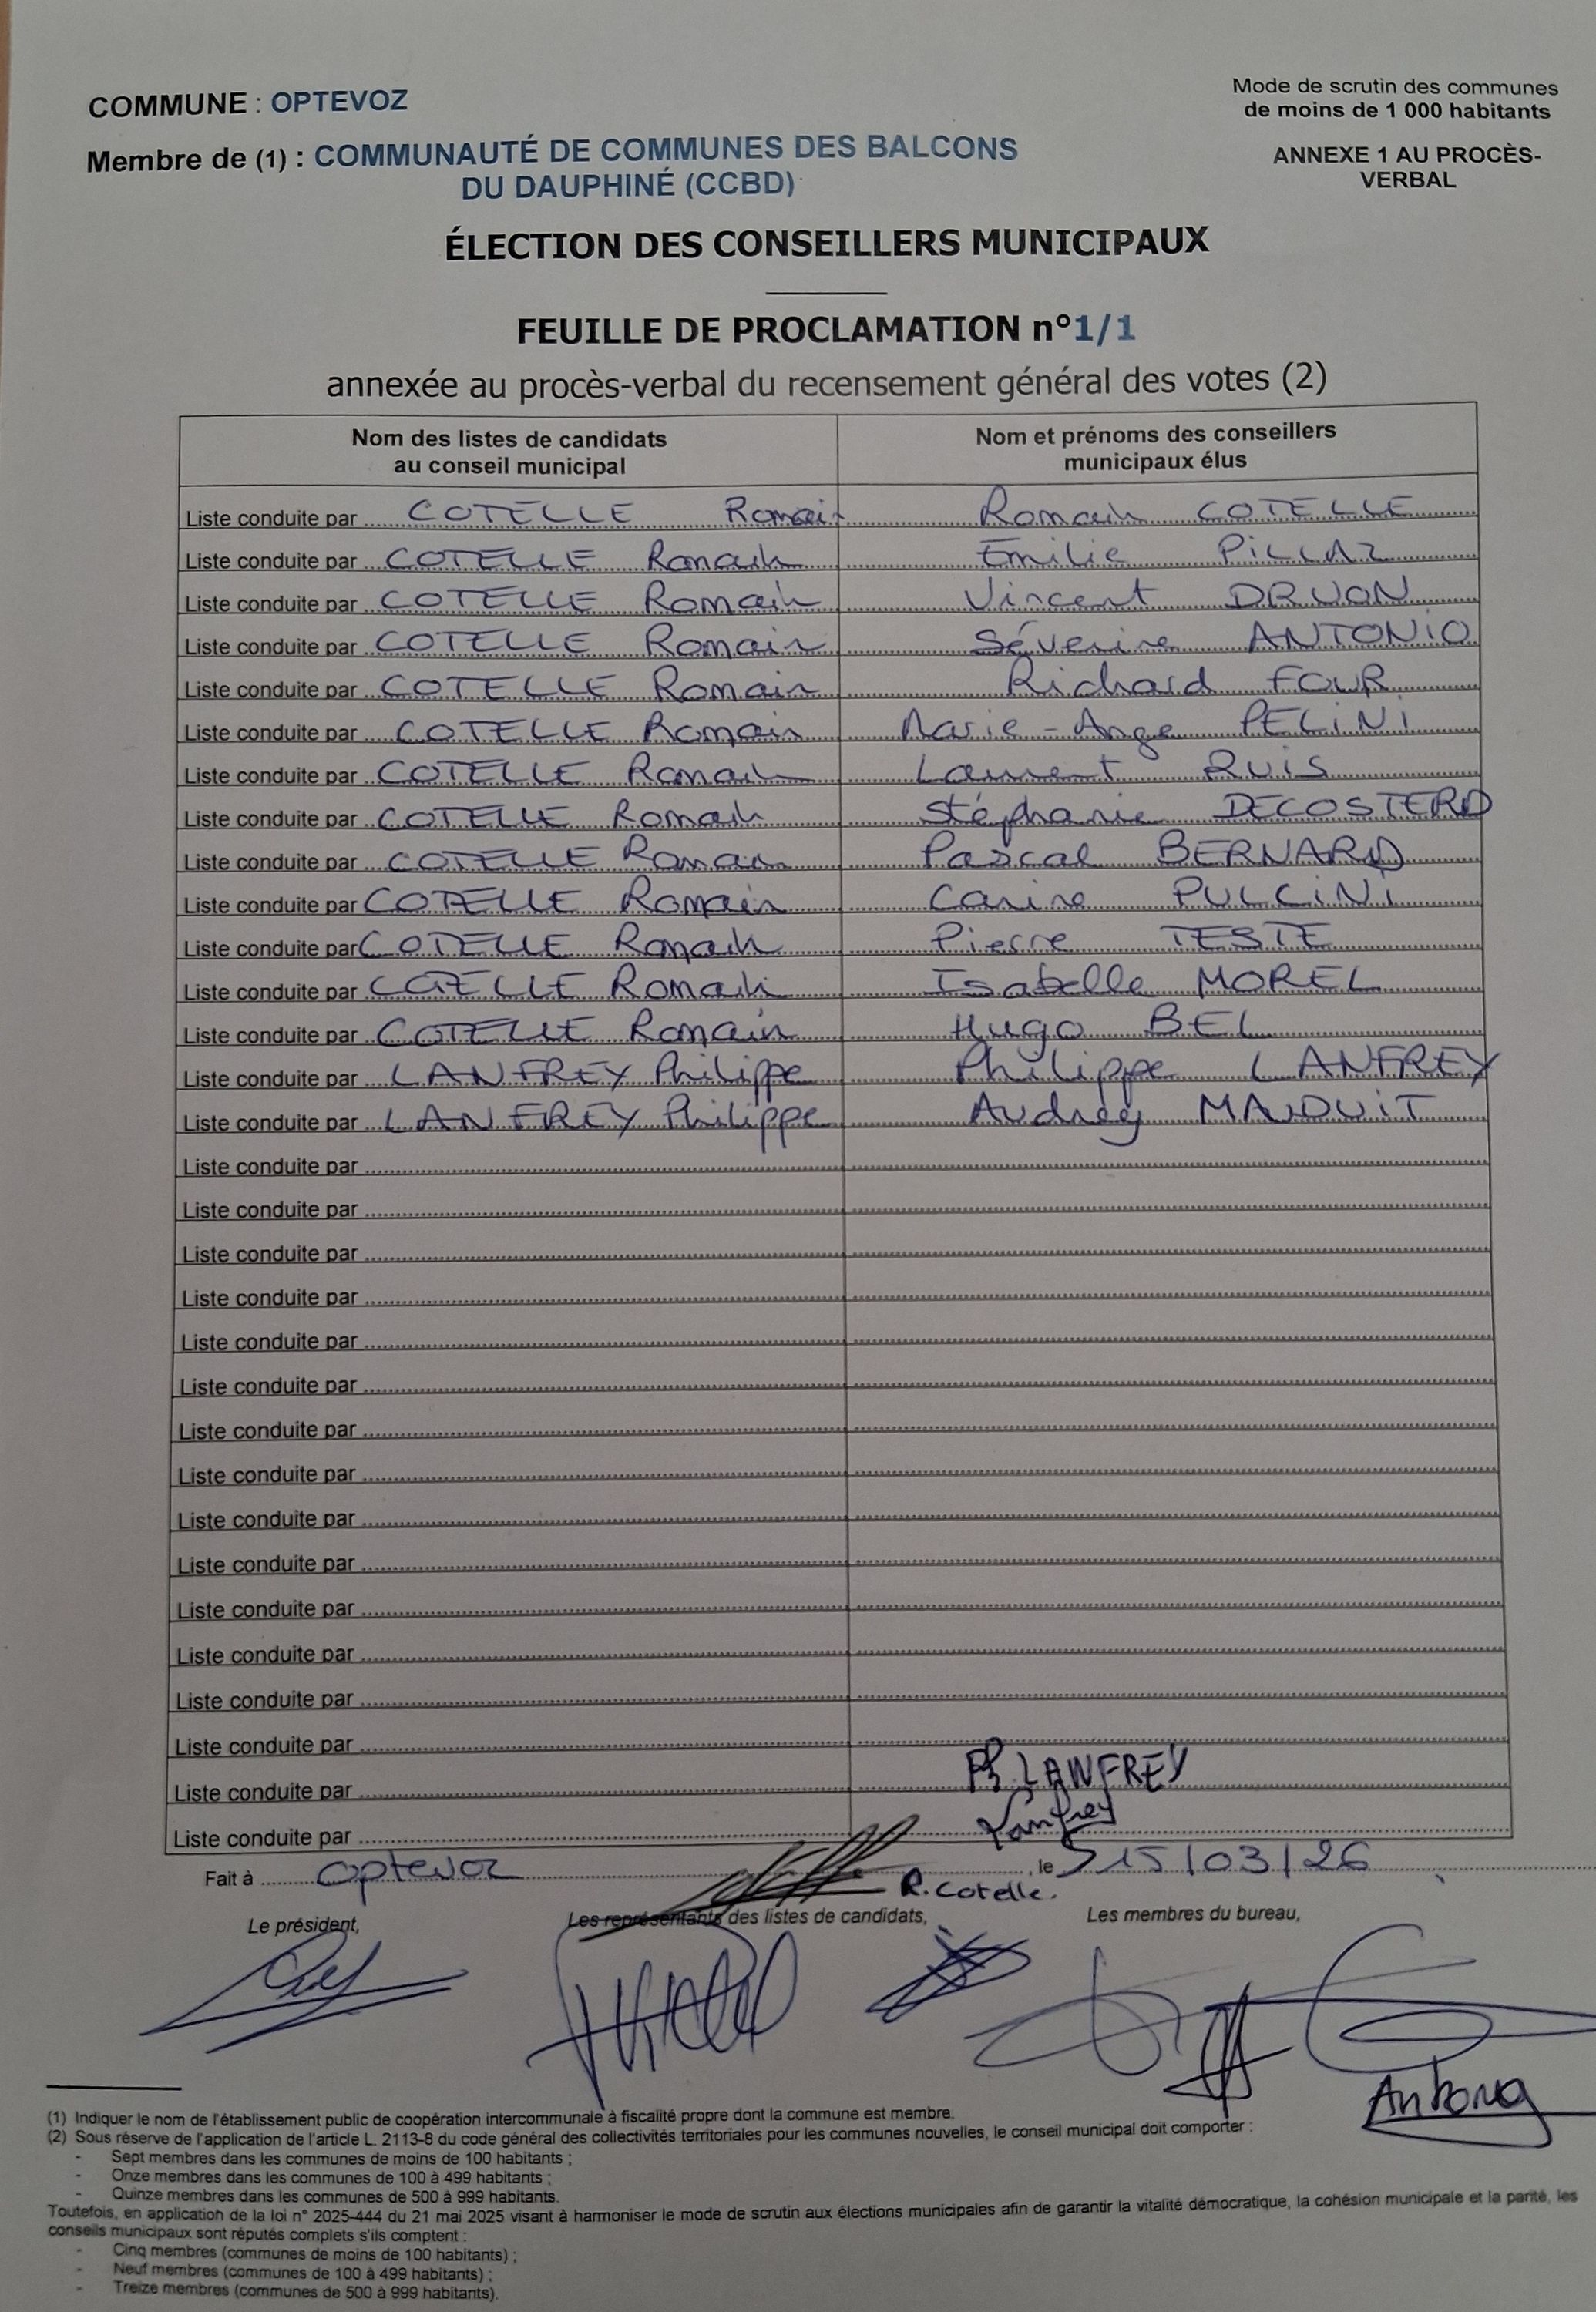 COMMUNE : OPTEVOZ
Mode de scrutin des communes
de moins de 1 000 habitants
Membre de (1) : COMMUNAUTÉ DE COMMUNES DES BALCONS
DU DAUPHINÉ (CCBD)
ANNEXE 1 AU PROCÈS-
VERBAL
ÉLECTION DES CONSEILLERS MUNICIPAUX
FEUILLE DE PROCLAMATION n°1/1
annexée au procès-verbal du recensement général des votes (2)
Nom des listes de candidats
au conseil municipal
Nom et prénoms des conseillers
municipaux élus
Liste conduite par COTELLE Romain Romain COTELLE
Liste conduite par COTELLE Romain Emilie PiLLAZ
Liste conduite par COTELLE Romain Vincent DRUON
Liste conduite par COTELLE Romain Séverine ANTONiO
Liste conduite par COTELLE Romain Richard FOUR
Liste conduite par COTELLE Romain Marie-Ange PELiNi
Liste conduite par COTELLE Romain Laurent RUiS
Liste conduite par COTELLE Romain Stéphanie DECOSTERD
Liste conduite par COTELLE Romain Pascal BERNARD
Liste conduite par COTELLE Romain Carine PULCiNi
Liste conduite par COTELLE Romain Pierre TESTE
Liste conduite par COTELLE Romain Isabelle MOREL
Liste conduite par COTELLE Romain Hugo BEL
Liste conduite par LANFREY Philippe Philippe LANFREY
Liste conduite par LANFREY Philippe Audrey MAUDUiT
Liste conduite par
Liste conduite par
Liste conduite par
Liste conduite par
Liste conduite par
Liste conduite par
Liste conduite par
Liste conduite par
Liste conduite par
Liste conduite par
Liste conduite par
Liste conduite par
Liste conduite par
Liste conduite par
Liste conduite par LANFREY
Lanfrey
Liste conduite par
Fait à Optevoz , le 15/03/26
R. Cotelle.
Le président,
Les représentants des listes de candidats,
Les membres du bureau,
(1) Indiquer le nom de l'établissement public de coopération intercommunale à fiscalité propre dont la commune est membre.
(2) Sous réserve de l'application de l'article L. 2113-8 du code général des collectivités territoriales pour les communes nouvelles, le conseil municipal doit comporter :
- Sept membres dans les communes de moins de 100 habitants ;
- Onze membres dans les communes de 100 à 499 habitants ;
- Quinze membres dans les communes de 500 à 999 habitants.
Toutefois, en application de la loi n° 2025-444 du 21 mai 2025 visant à harmoniser le mode de scrutin aux élections municipales afin de garantir la vitalité démocratique, la cohésion municipale et la parité, les
conseils municipaux sont réputés complets s'ils comptent :
- Cinq membres (communes de moins de 100 habitants) ;
- Neuf membres (communes de 100 à 499 habitants) ;
- Treize membres (communes de 500 à 999 habitants).